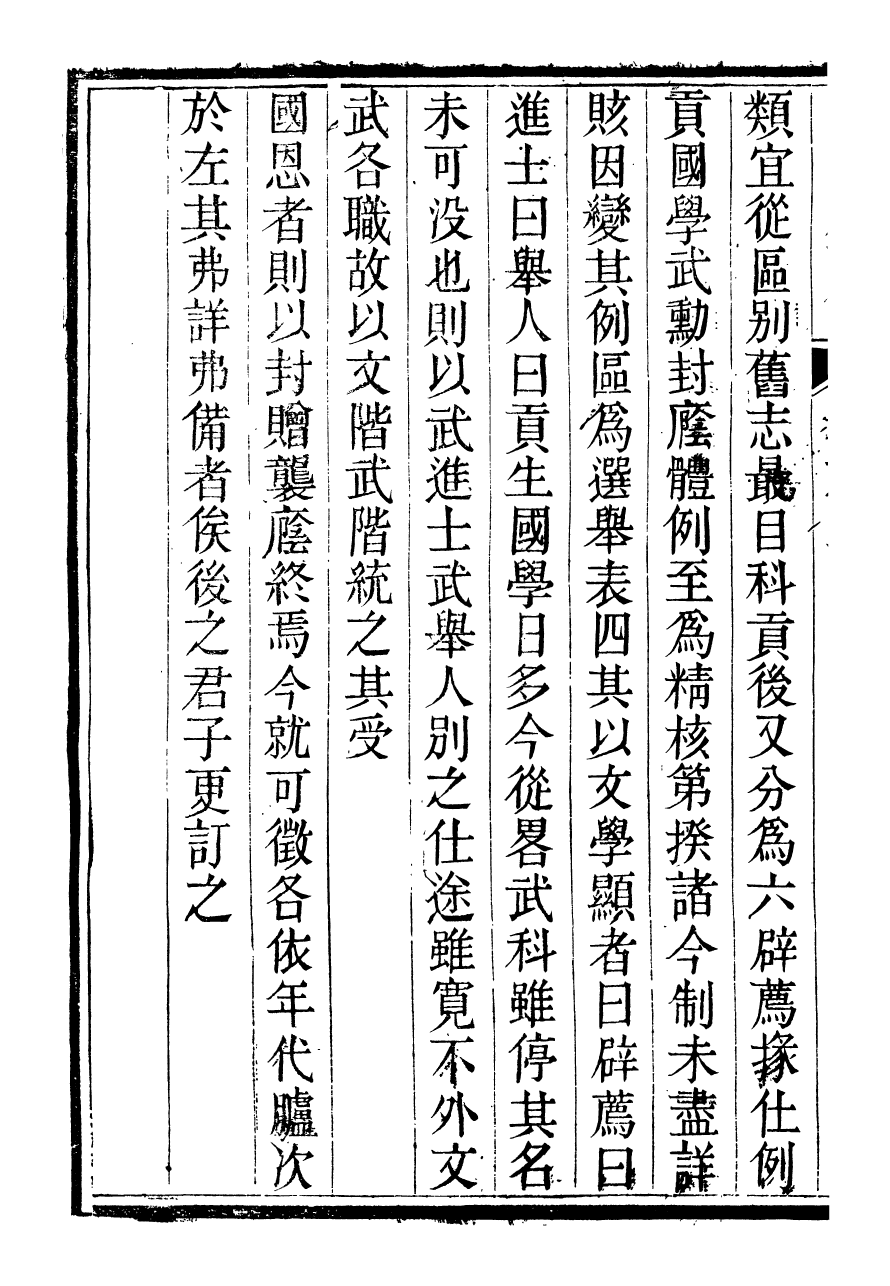 類宜從區别舊志最目科貢後又分為六辟薦掾仕例
貢國學武勳封廕體例至為精核第揆諸今制未盡詳
賅因變其例區為選舉表四其以文學顯者曰辟薦曰
進士曰舉人曰貢生國學日多今從畧武科雖停其名
未可没也則以武進士武舉人別之仕途雖寛不外文
武各職故以文階武階統之其受
國恩者則以封贈襲廕終焉今就可徵各依年代臚次
於左其弗詳弗備者俟後之君子更訂之